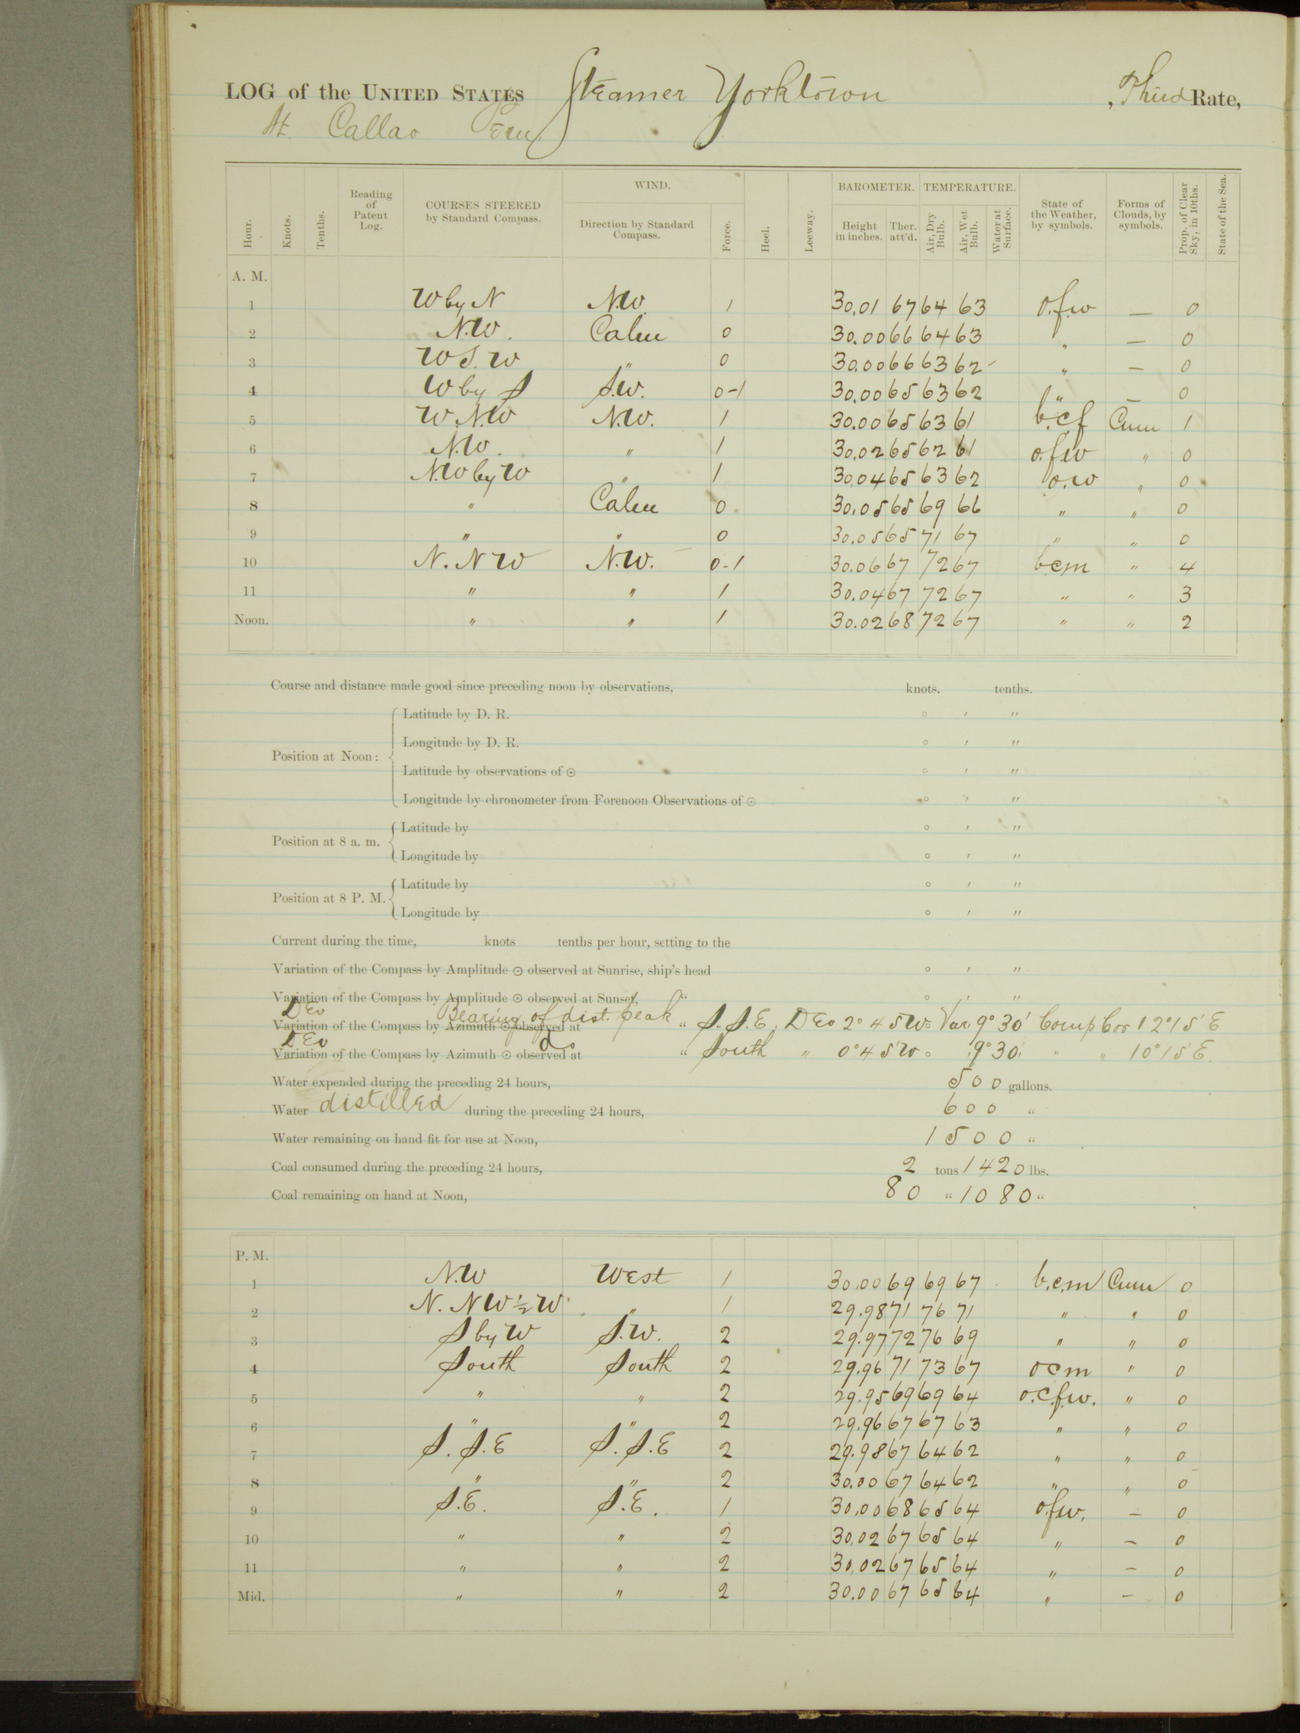 LOG of the UNITED STATES Steamer Yorktown, Third Rate,
At Callao Peru
Hour. Knots. Tenths. Reading of Patent Log. COURSES STEERED by Standard Compass. WIND. Direction by Standard Compass. Force. Heel. Leeway. BAROMETER. Height in inches. Ther. att'd. TEMPERATURE. Air, Dry Bulb. Air, Wet Bulb. Water at Surface. State of the Weather, by symbols. Forms of Clouds, by symbols. Prop. of Clear Sky, in 10ths. State of the Sea.
A. M.
1 W by N N.W. 1 30.01 67 64 63 o.f.w — 0
2 N.W. Calm 0 30.00 66 64 63 " — 0
3 W S. W " 0 30.00 66 63 62 " — 0
4 W by S S.W. 0-1 30.00 65 63 62 " — 0
5 W N.W N.W. 1 30.00 65 63 61 b.c.f Cum 1
6 N.W. " 1 30.02 65 62 61 o.f.w " 0
7 N.W by W " 1 30.04 65 63 62 o.w " 0
8 " Calm 0 30.05 65 69 66 " " 0
9 " " 0 30.05 65 71 67 " " 0
10 N. N W N.W. 0-1 30.06 67 72 67 bcm " 4
11 " " 1 30.04 67 72 67 " " 3
Noon. " " 1 30.02 68 72 67 " " 2
Course and distance made good since preceding noon by observations, knots. tenths.
Position at Noon:
Latitude by D. R. ° ′ ″
Longitude by D. R. ° ′ ″
Latitude by observations of ☉ ° ′ ″
Longitude by chronometer from Forenoon Observations of ☉ ° ′ ″
Position at 8 a. m.
Latitude by ° ′ ″
Longitude by ° ′ ″
Position at 8 P. M.
Latitude by ° ′ ″
Longitude by ° ′ ″
Current during the time, knots tenths per hour, setting to the
Variation of the Compass by Amplitude ☉ observed at Sunrise, ship's head ° ′ ″
Variation of the Compass by Amplitude ☉ observed at Sunset, " ° ′ ″
Dev Bearing of dist. peak
Variation of the Compass by Azimuth ☉ observed at " S. S. E; Dev 2° 45 W. Var 9° 30' Comp Cor 12° 15' E
Dev do
Variation of the Compass by Azimuth ☉ observed at " South " 0° 45' W. 9° 30' " " 10° 15' E.
Water expended during the preceding 24 hours, 500 gallons.
Water distilled during the preceding 24 hours, 600 "
Water remaining on hand fit for use at Noon, 1500 "
Coal consumed during the preceding 24 hours, 2 tons 1420 lbs.
Coal remaining on hand at Noon, 80 " 1080 "
P. M.
1 N.W West 1 30.00 69 69 67 b.c.m Cum 0
2 N. NW ½ W " 1 29.98 71 76 71 " " 0
3 S by W S.W. 2 29.97 72 76 69 " " 0
4 South South 2 29.96 71 73 67 ocm " 0
5 " " 2 29.95 69 69 64 o.c.f.w. " 0
6 " " 2 29.96 67 67 63 " " 0
7 S. S. E S. S. E 2 29.98 67 64 62 " " 0
8 " " 2 30.00 67 64 62 " " 0
9 S.E. S.E. 1 30.00 68 65 64 o.f.w. — 0
10 " " 2 30.02 67 65 64 " — 0
11 " " 2 30.02 67 65 64 " — 0
Mid. " " 2 30.00 67 65 64 " — 0